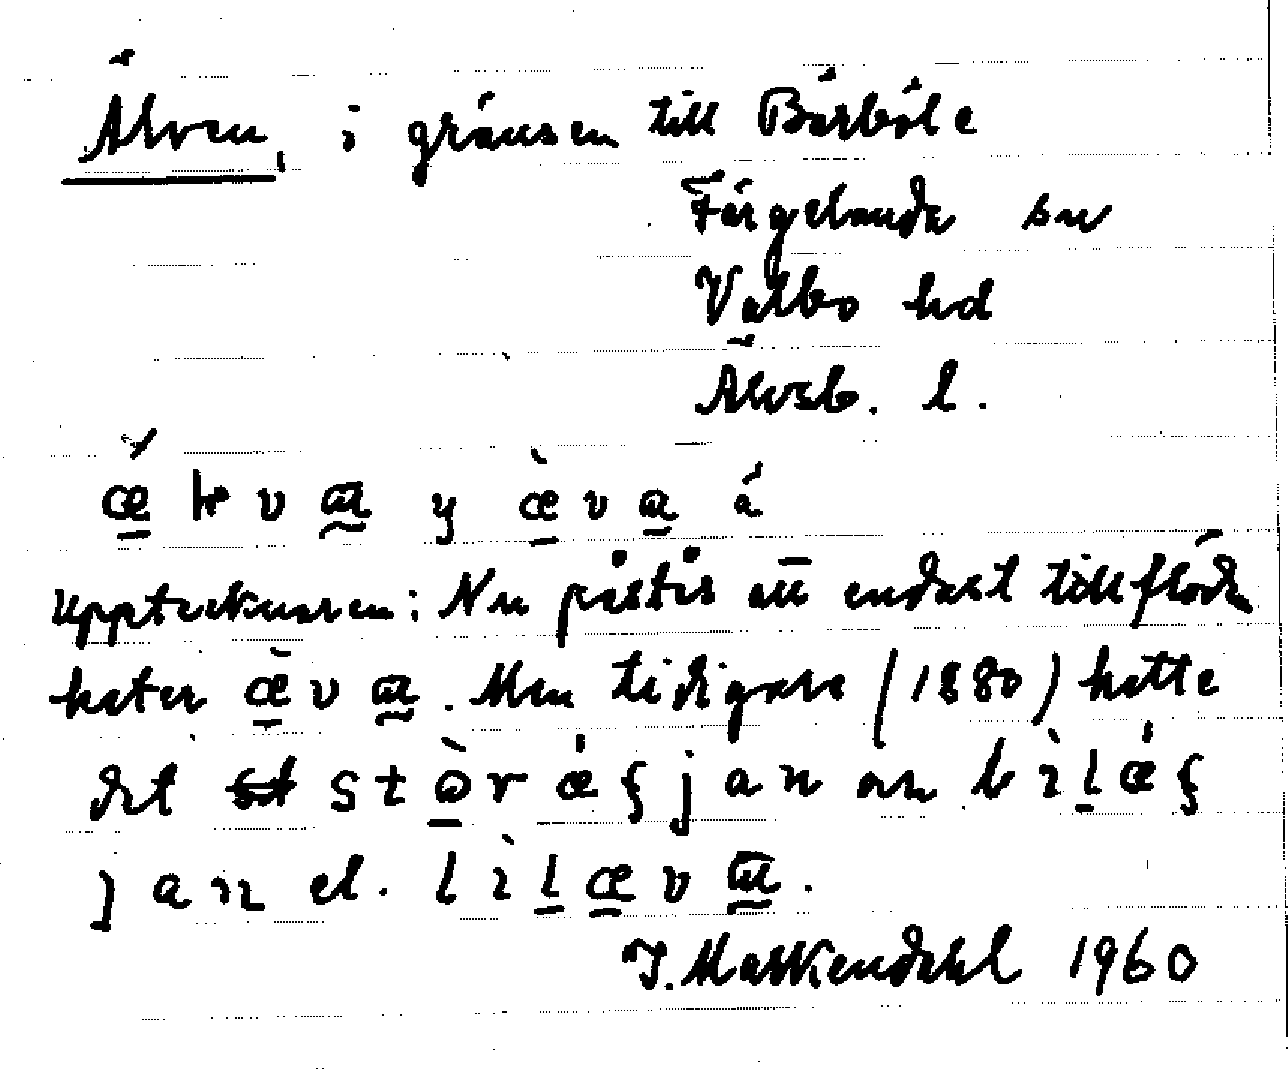 Älven, i gränsen till Bärböle
Färgelanda sn
Valbo hd
Älvsb. l.
y æ̀va á
Upptecknaren: Nu påstås att endast tillflödn
heter æ̀va. Men tidigare (1880) hette
det stòr jan
jan el. lìlæva.
J. Markendahl 1960